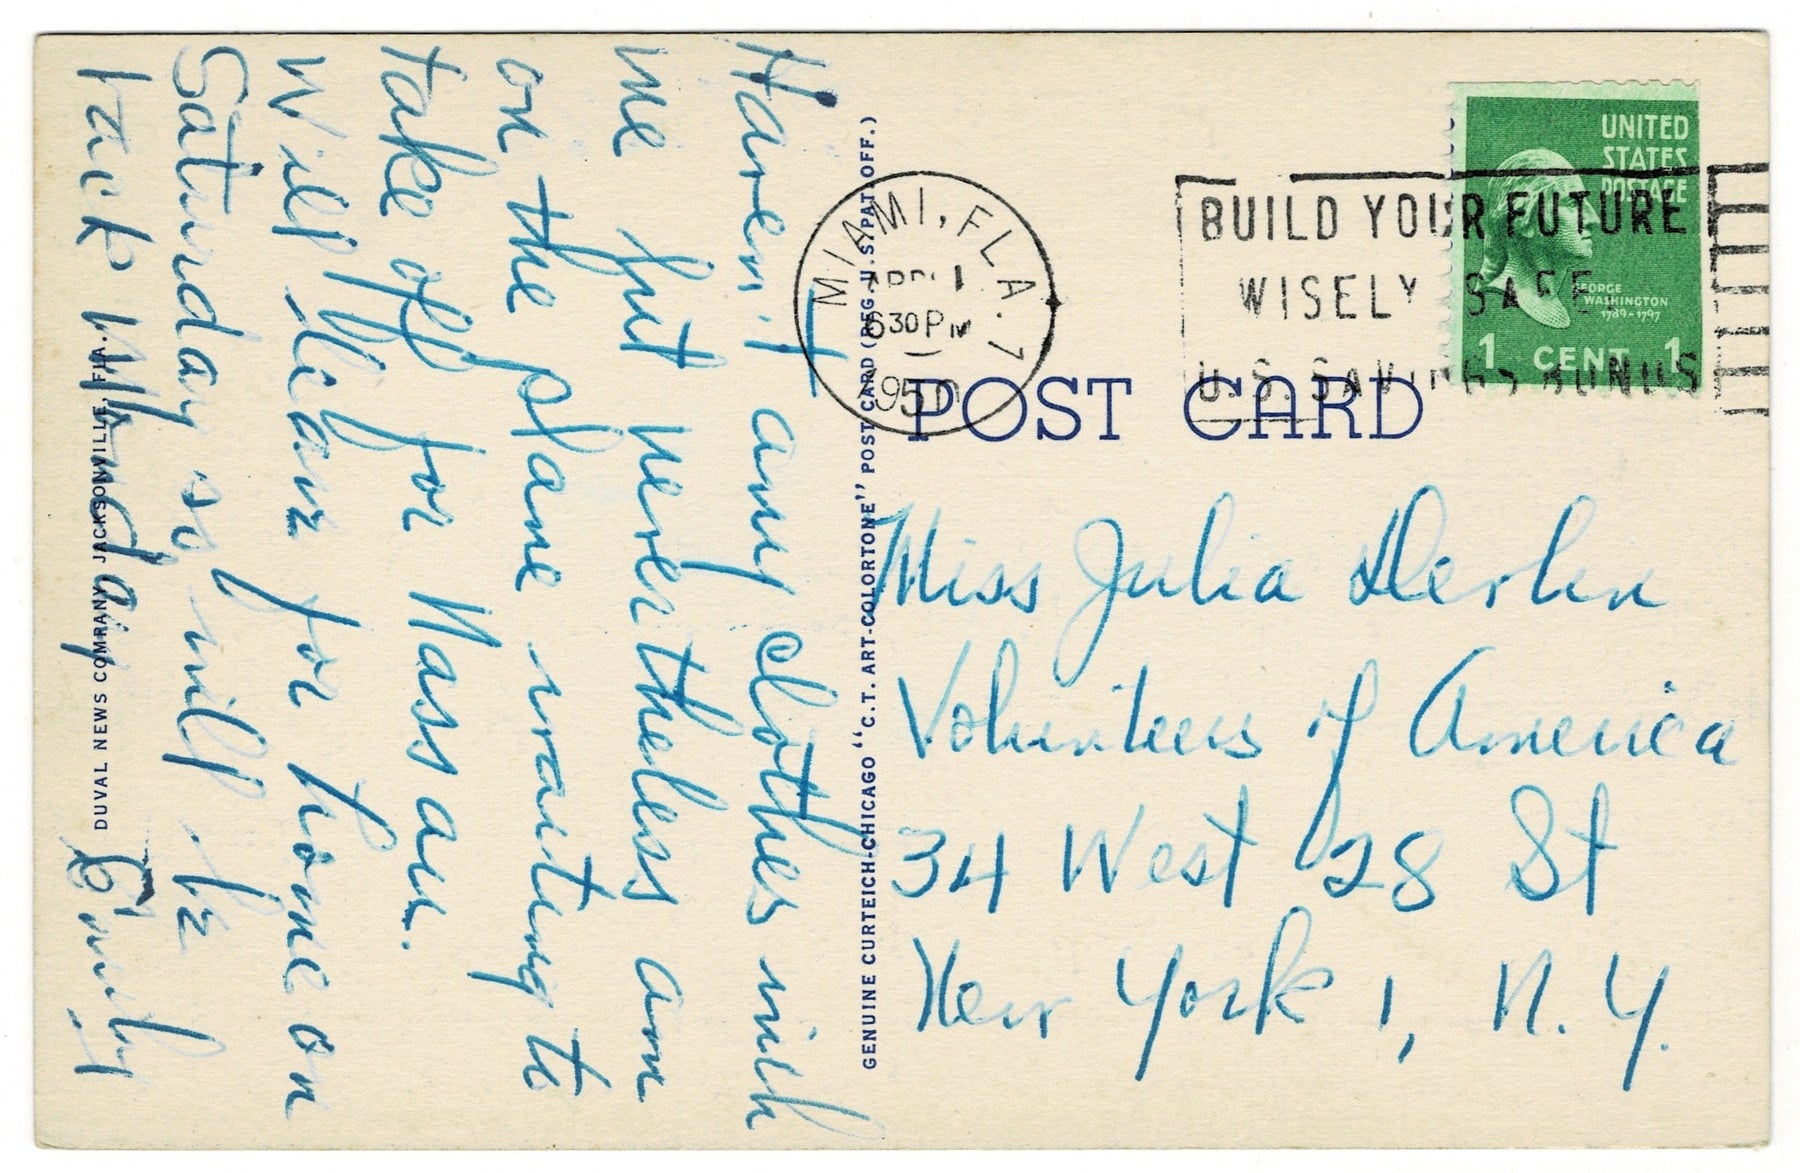 Haven't any clothes with
me but nevertheless am
on the plane waiting to
take off for Nassau.
Will clear for home on
Saturday so, will be
back Monday
Emily
DUVAL NEWS COMPANY, JACKSONVILLE, FLA.
GENUINE CURTEICH-CHICAGO "C.T. ART-COLORTONE" POST CARD (REG. U.S. PAT. OFF.)
MIAMI, FLA. 7
APR 1
630 PM
1950
BUILD YOUR FUTURE
WISELY SAFE
U.S. SAVINGS BONDS
UNITED
STATES
POSTAGE
GEORGE
WASHINGTON
1789-1797
1 CENT 1
POST CARD
Miss Julia Devlin
Volunteers of America
34 West 28 St
New York 1, N.Y.